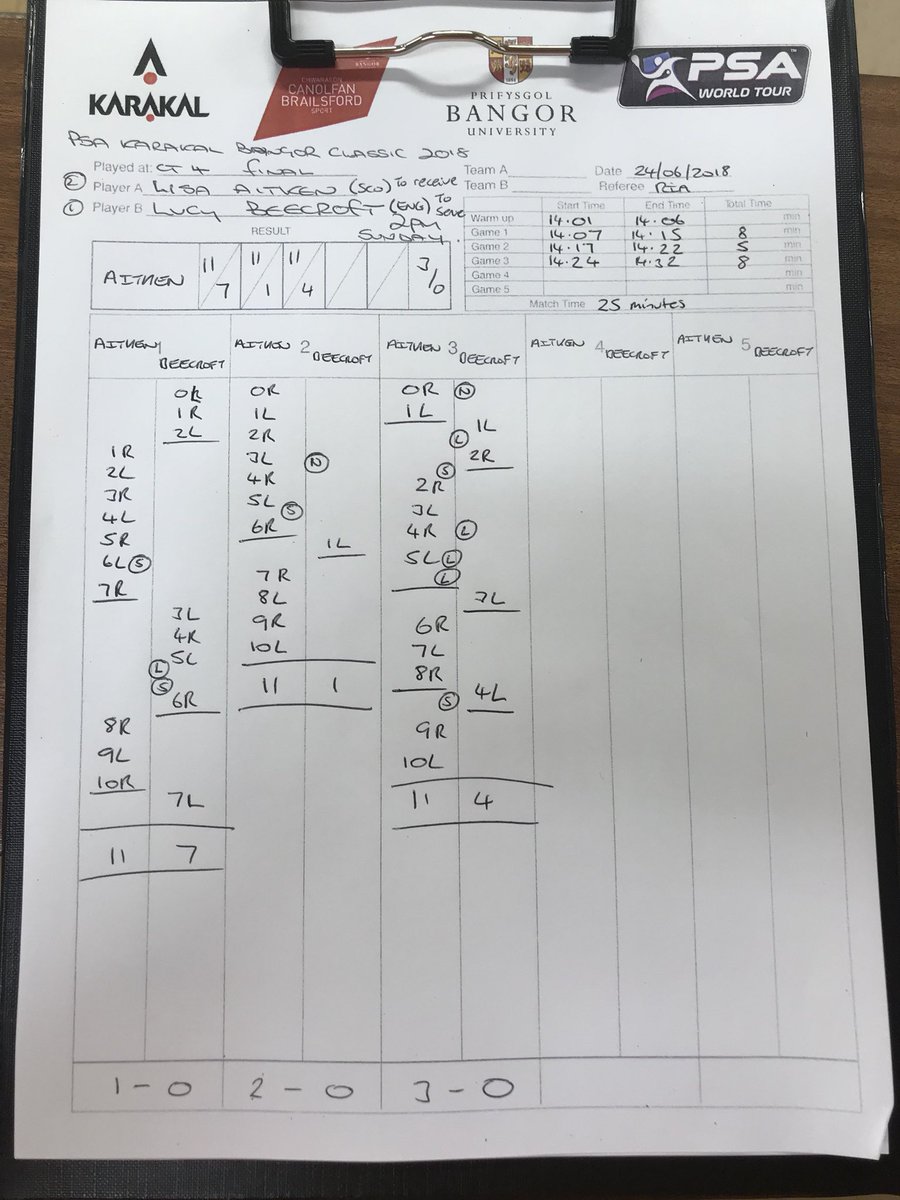 KARAKAL
CHWARAEON
BANGOR
CANOLFAN
BRAILSFORD
SPORT
PRIFYSGOL
BANGOR
UNIVERSITY
PSA
WORLD TOUR
PSA KARAKAL BANGOR CLASSIC 2018
Played at: CT 4 FINAL
Team A
Date 24/06/2018
② Player A LISA AITKEN (SCO) TO RECEIVE
Team B
Referee RIA
① Player B LUCY BEECROFT (ENG) TO SERVE
2PM
SUNDAY
Start Time End Time Total Time
Warm up 14.01 14.06 min
Game 1 14.07 14.15 8 min
Game 2 14.17 14.22 5 min
Game 3 14.24 14.32 8 min
Game 4 min
Game 5 min
Match Time 25 minutes
RESULT
AITKEN 11/7 11/1 11/4 3/0
AITKEN 1 BEECROFT
0R
1R
2L
1R
2L
3R
4L
5R
6L Ⓢ
7R
3L
4R
5L
Ⓛ
Ⓢ
6R
8R
9L
10R
7L
11 7
1 - 0
AITKEN 2 BEECROFT
0R
1L
2R
3L Ⓝ
4R
5L Ⓢ
6R
1L
7R
8L
9R
10L
11 1
2 - 0
AITKEN 3 BEECROFT
0R Ⓝ
1L
1L
Ⓛ
2R
Ⓢ
2R
3L
4R Ⓛ
5L Ⓛ
Ⓛ
3L
6R
7L
8R
Ⓢ 4L
9R
10L
11 4
3 - 0
AITKEN 4 BEECROFT
AITKEN 5 BEECROFT